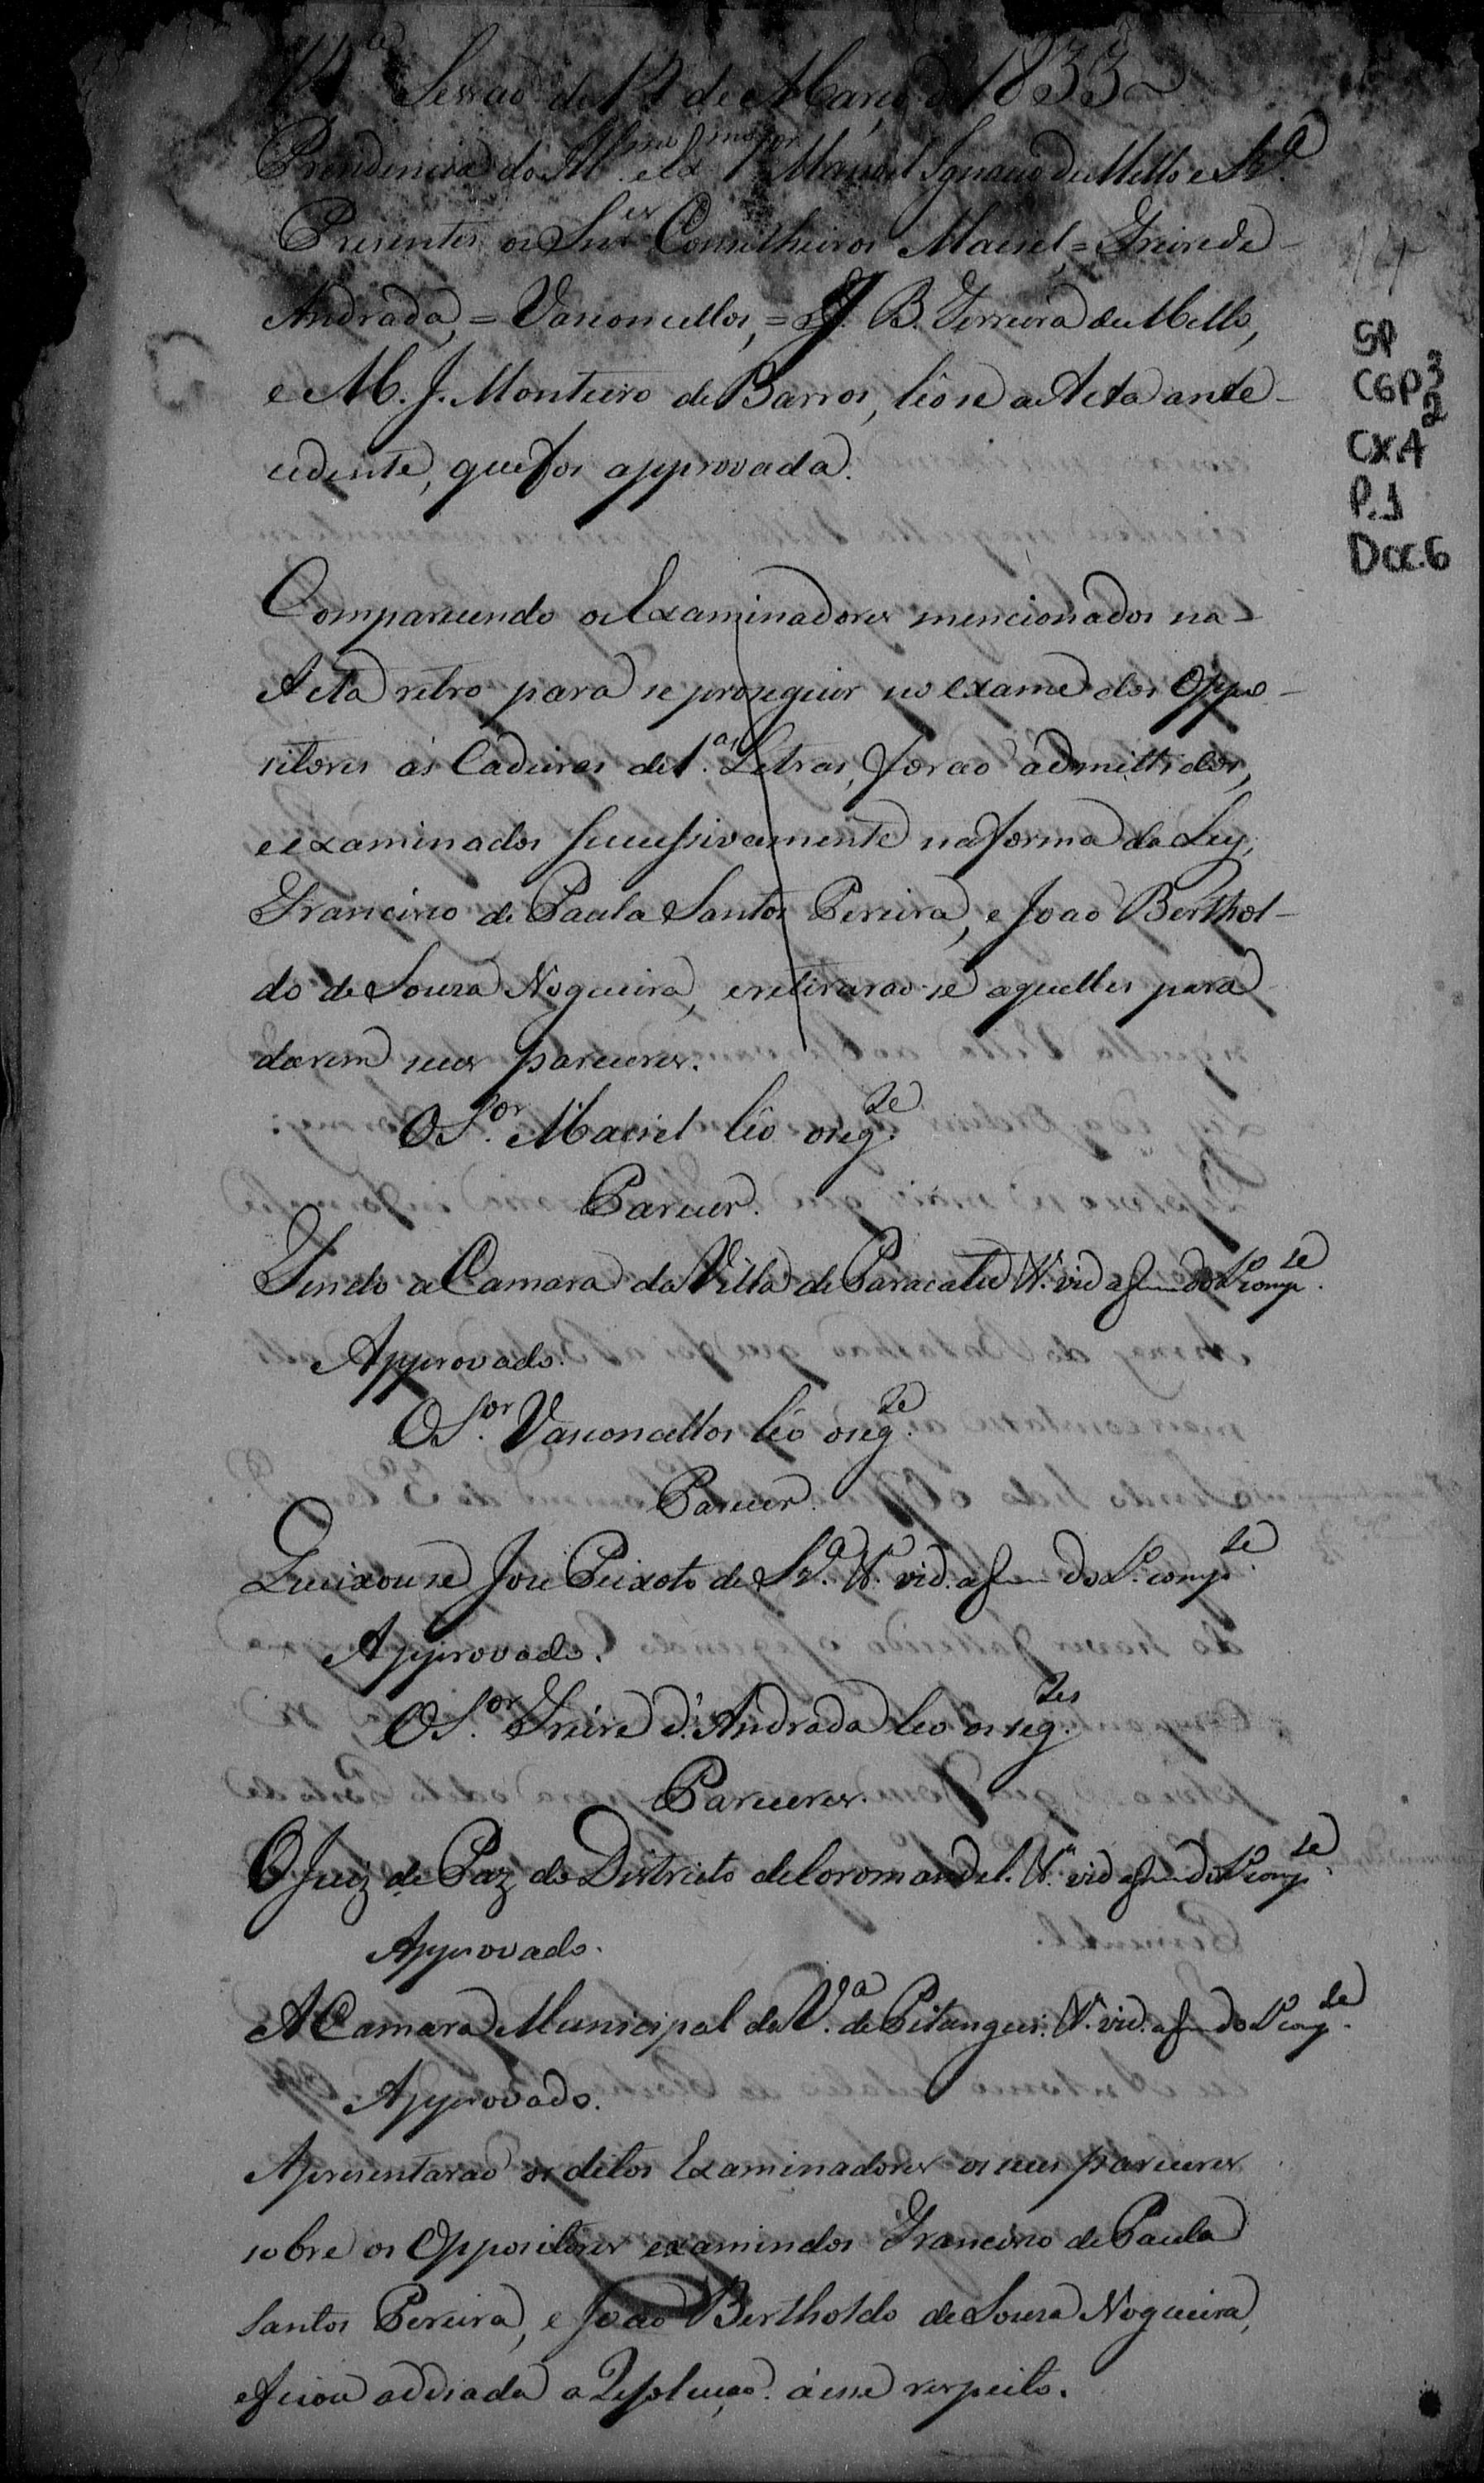 Sessaõ de 12 de Março de 1833
Presidencia do Ill.mo e Ex.mo Manoel Ignacio de Mello e Sz.ª
Presentes os Snr.es Conselheiros Maciel, = Freire de
Andrada, = Vasconcellos, = J. B. Ferreira de Mello,
e M. J. Monteiro de Barros, lêo se a Acta ante-
cedente, que foi approvada.
Comparecendo os Examinadores mencionados na
Acta retro para se proseguir no exame dos Oppo-
sitores ás Cadeiras de 1.as Letras, foraõ admittidos,
e examinados successivamente na forma da Ley,
Francisco de Paula Santos Pereira, e Joaõ Berthol-
do de Souza Nogueira, e retiraraõ-se aquelles para
darem seus pareceres.
O S.or Maciel lêo o seg.te
Parecer.
Tendo a Camara da Villa de Paracatú V. vid a f do L.º comp.te
Approvado.
O S.or Vasconcellos lêo o seg.te
Parecer.
Queixouse José Peixoto de Sz.ª V. vid. a f do L.º comp.te
Approvado.
O S.or Freire d'Andrada leo os seg.tes
Pareceres.
O Juiz de Paz do Districto de Coromandel. V. vid a f do L.º comp.te
Approvado.
A Camara Municipal da V.ª de Pitangui. V. vid. a f do L.º comp.te
Approvado.
Apresentaraõ os ditos Examinadores os seus pareceres
sobre os Oppositores examindos Francisco de Paula
Santos Pereira, e Joaõ Bertholdo de Souza Nogueira,
e ficou addiada a Resoluçaõ á esse respeito.
14
SP
CGP 3
2
CX.4
P.1
Doc.6